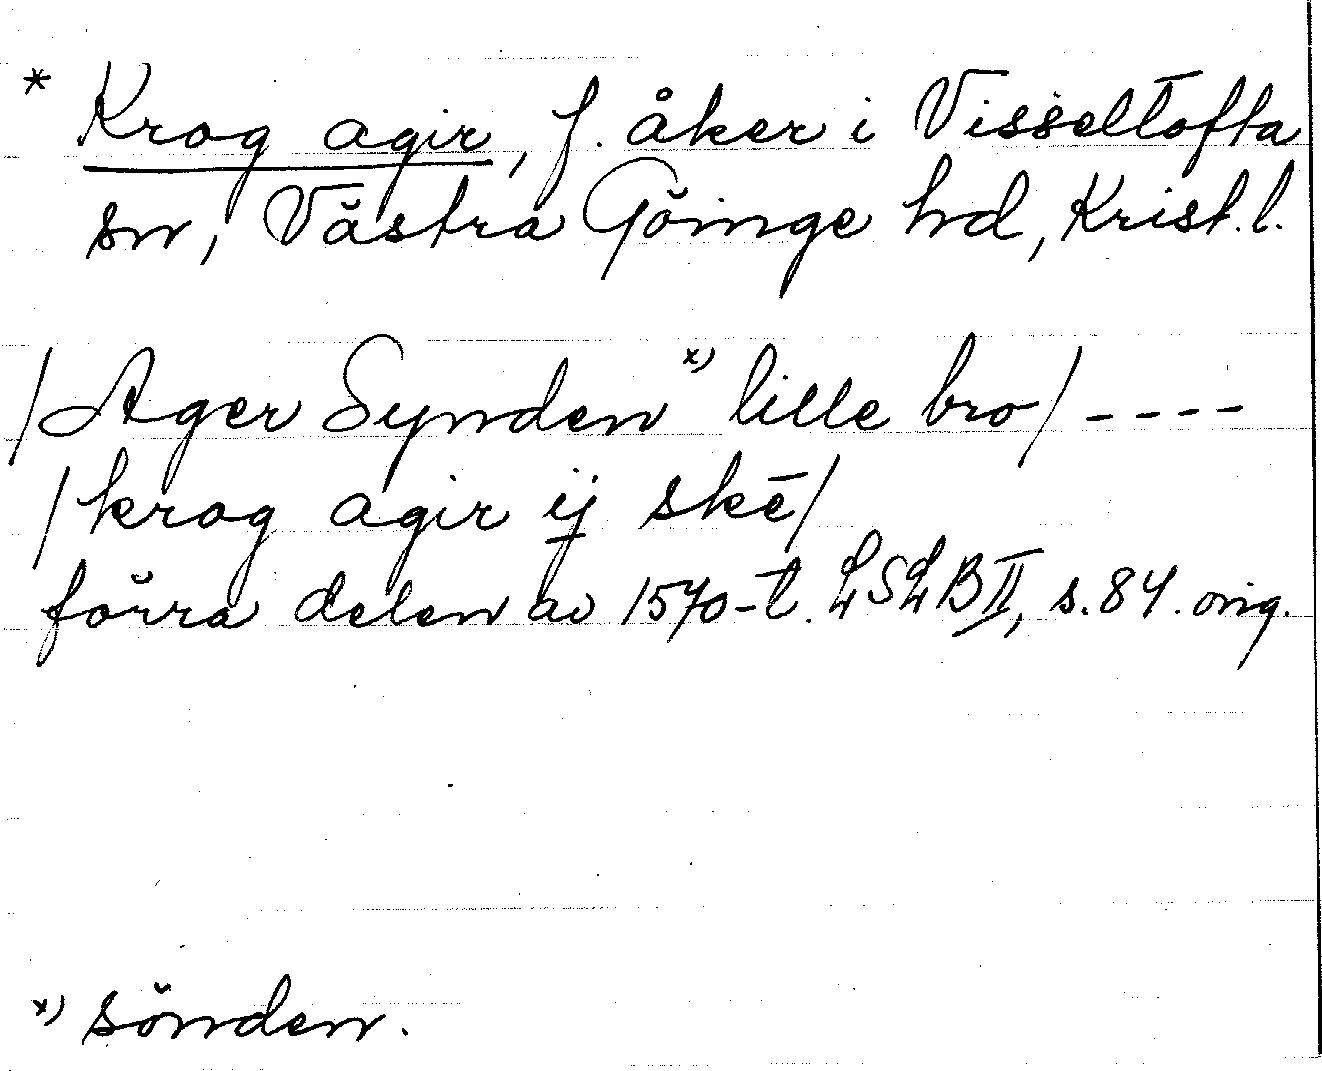 * Krog agir, f. åker i Visseltofta
sn, Västra Göinge hd, Krist.l.
/Ager Synden *) lille bro/ - - - -
/krog agir ij skē/
förra delen av 1570-t. LSLB II, s. 84. orig.
*) sönden.